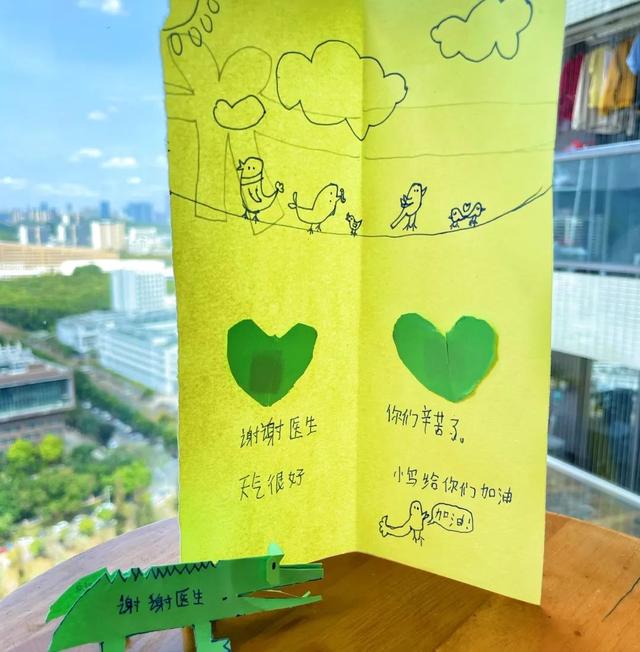 谢谢医生
天气很好
你们辛苦了。
小鸟给你们加油
加油!
谢谢医生.